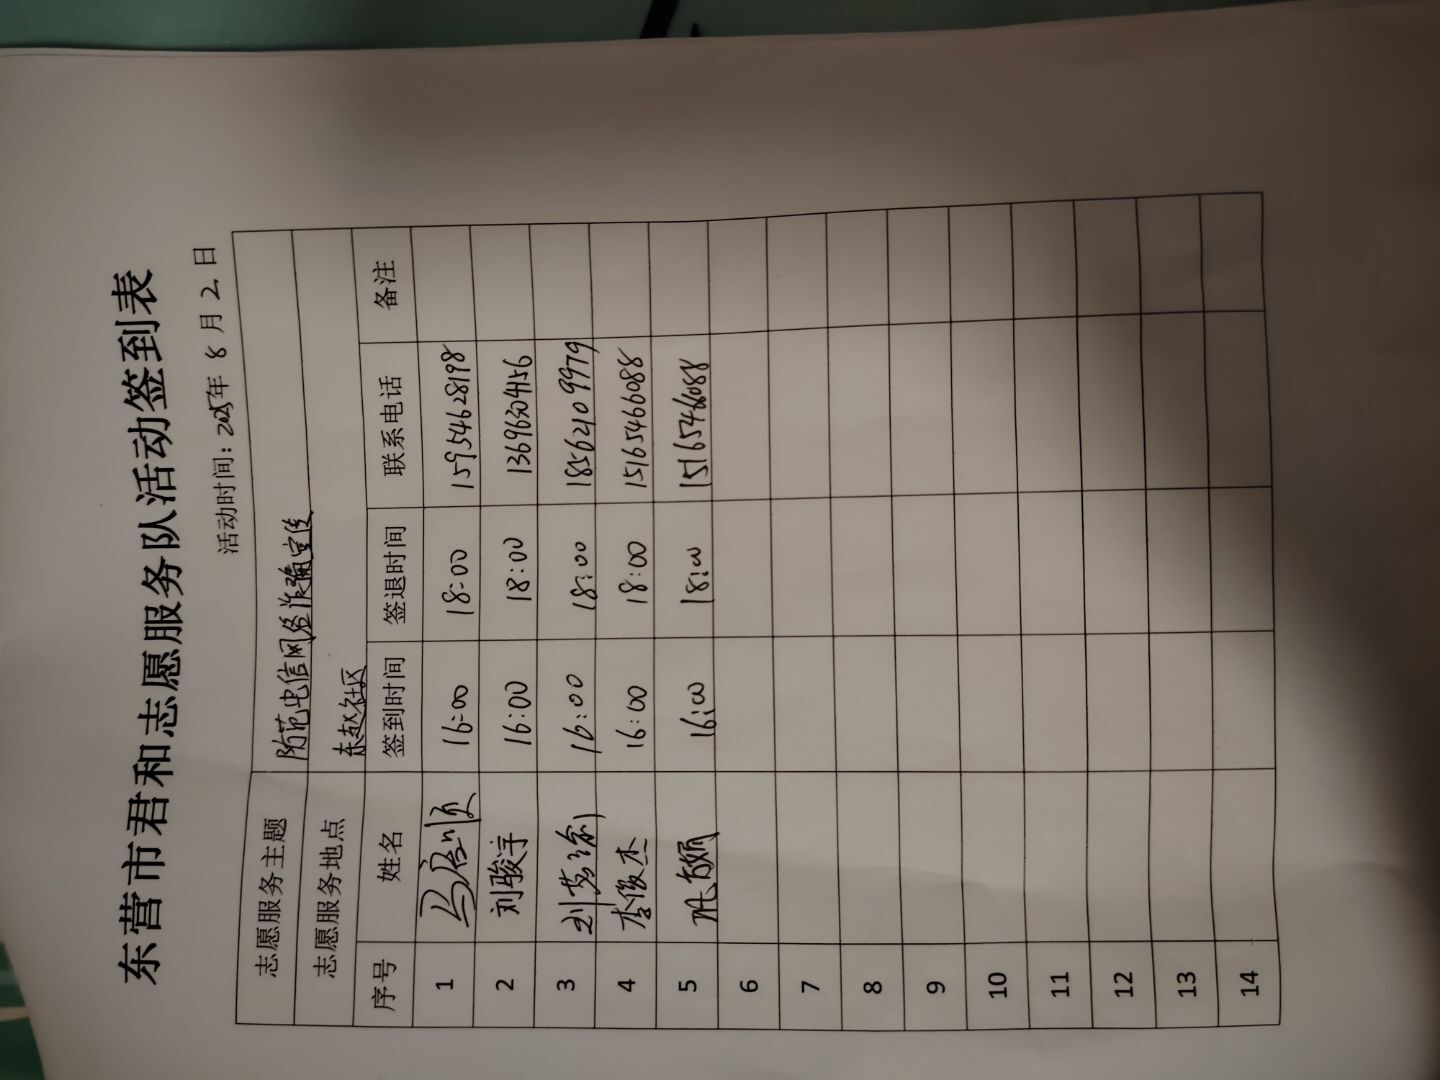 东营市君和志愿服务队活动签到表
活动时间：2025年 8 月 2 日
志愿服务主题 防范电信网络诈骗宣传
志愿服务地点 东赵社区
序号 姓名 签到时间 签退时间 联系电话 备注
1 16:00 18:00 15954628198
2 刘骏宇 16:00 18:00 13696504156
3 16:00 18:00 18562109979
4 李俊杰 16:00 18:00 15165466088
5 16:00 18:00
6
7
8
9
10
11
12
13
14